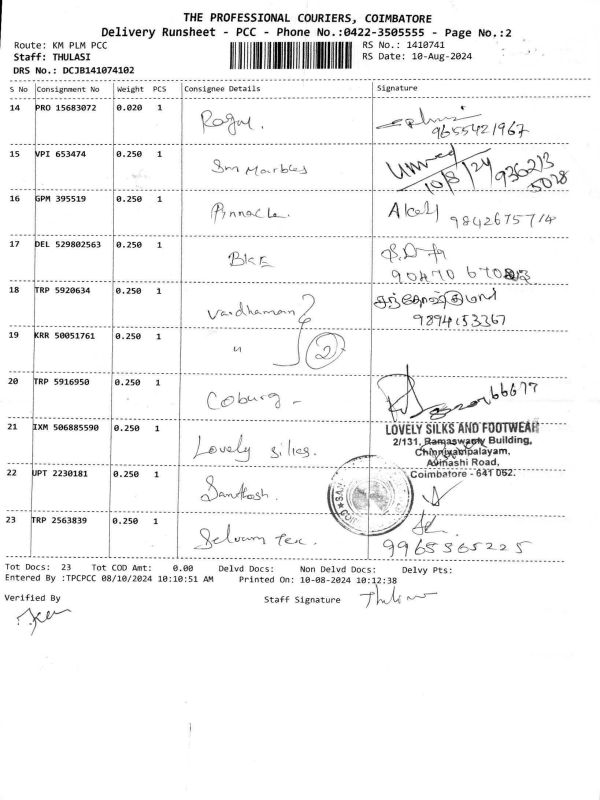 THE PROFESSIONAL COURIERS, COIMBATORE
Delivery Runsheet - PCC - Phone No.:0422-3505555 - Page No.:2
Route: KM PLM PCC RS No.: 1410741
Staff: THULASI RS Date: 10-Aug-2024
DRS No.: DCJB141074102
S No Consignment No Weight PCS Consignee Details Signature
14 PRO 15683072 0.020 1 Ragul.
9655421967
15 VPI 653474 0.250 1 Sm Marbles
10/8/24 936213
5028
16 GPM 395519 0.250 1 Pinnacle. 9842675714
17 DEL 529802563 0.250 1 BKE
90470
18 TRP 5920634 0.250 1 Vardhaman சந்தோஷ்குமார்
9894153367
19 KRR 50051761 0.250 1 " 2
20 TRP 5916950 0.250 1 Coburg -
21 IXM 506885590 0.250 1 Lovely silks. LOVELY SILKS AND FOOTWEAR
2/131, Ramaswamy Building,
Chinniyampalayam,
Avinashi Road,
Coimbatore - 641 062.
22 UPT 2230181 0.250 1 Santhosh.
23 TRP 2563839 0.250 1 Selvam Tex.
9965565225
Tot Docs: 23 Tot COD Amt: 0.00 Delvd Docs: Non Delvd Docs: Delvy Pts:
Entered By :TPCPCC 08/10/2024 10:10:51 AM Printed On: 10-08-2024 10:12:38
Verified By Staff Signature